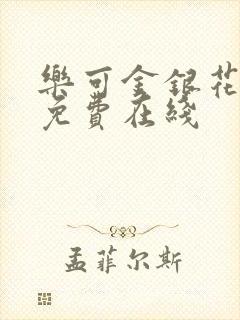 樂可金銀花
免費在綫
孟菲尔斯